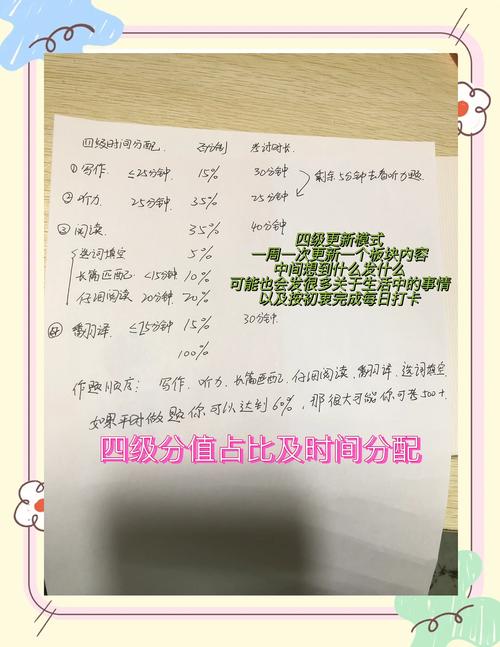 四级时间分配. 百分制 考试时长
① 写作 ≤25分钟 15% 30分钟 剩余5分钟去看听力题
② 听力 25分钟 35% 25分钟
③ 阅读 35% 40分钟
选词填空 5%
长篇匹配 <15分钟 10%
仔细阅读 20分钟 20%
④ 翻译 ≤25分钟 15% 30分钟
100%
四级更新模式
一周一次更新一个板块内容
中间想到什么发什么
可能也会发很多关于生活中的事情
以及按初衷完成每日打卡
作题顺序: 写作、听力、长篇匹配、仔细阅读、翻译、选词填空
如果平时做题你可以达到60%, 那很大可能你可考500+.
四级分值占比及时间分配